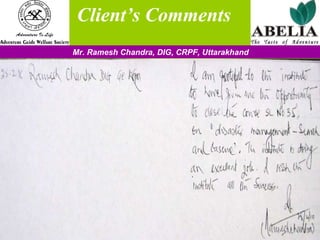 Client's Comments
Adventure Is Life
Adventure Guide Welfare Society
ABELIA
The Taste of Adventure
Mr. Ramesh Chandra, DIG, CRPF, Uttarakhand
Ramesh Chandra DIG
I am grateful to the institute
to have given me the opportunity
to close the course Sl No 35,
on "disaster management - Search
and Rescue". The institute is doing
an excellent job. I wish the
institute all the Success.
(Ramesh Chandra)